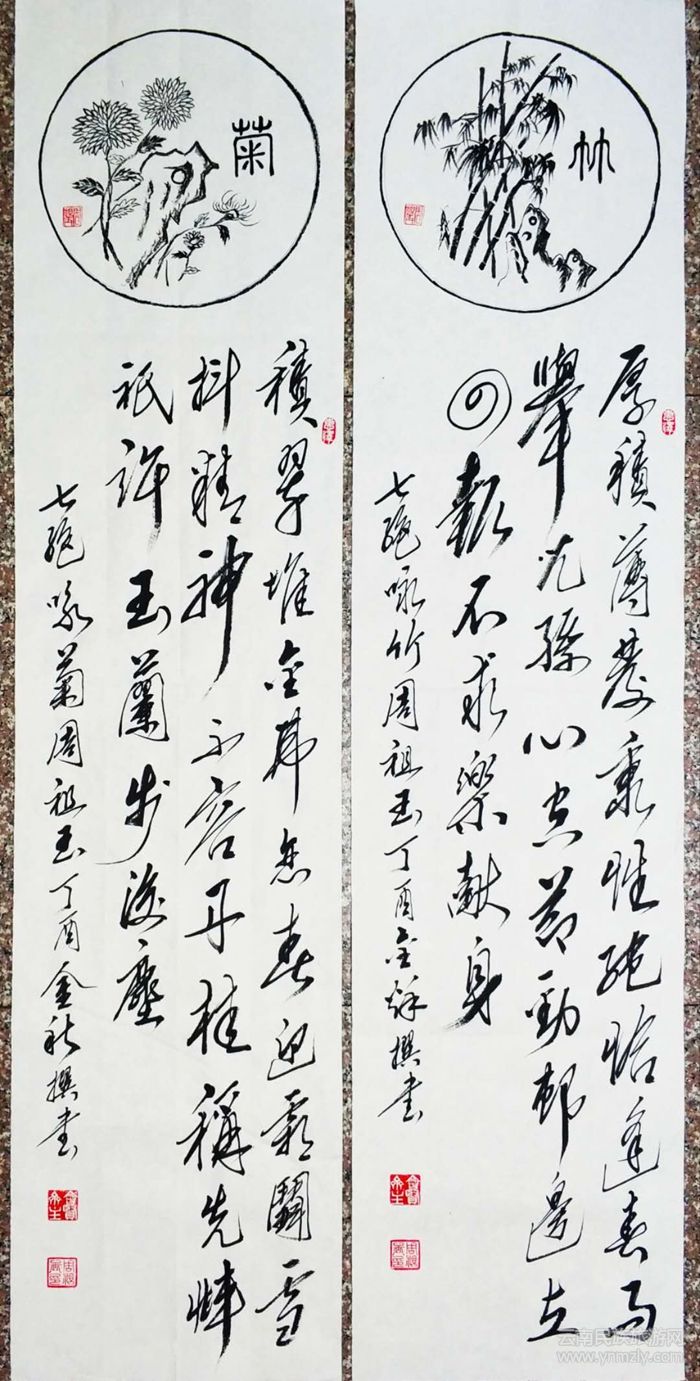 竹
厚積薄發秉性純恰逢春雨
舉兒孫心空節勁邨邊立
回報不求樂獻身
七絕咏竹周祖玉丁酉金秌撰書
菊
積翠堆金弗春迎霜鬪雪
抖精神不容丹桂稱先
祇許玉蘭步後塵
七絕咏菊周祖玉丁酉金秋撰書
云南民族旅游网
www.ynmzly.com